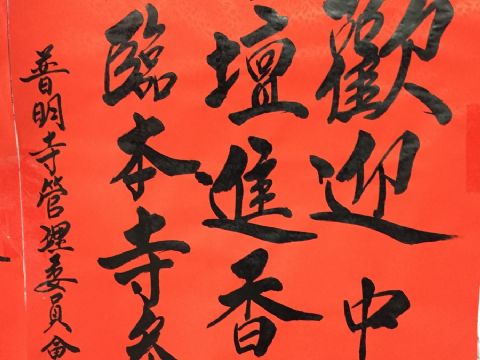 歡迎中
壇進香
臨本寺參
普明寺管理委員會